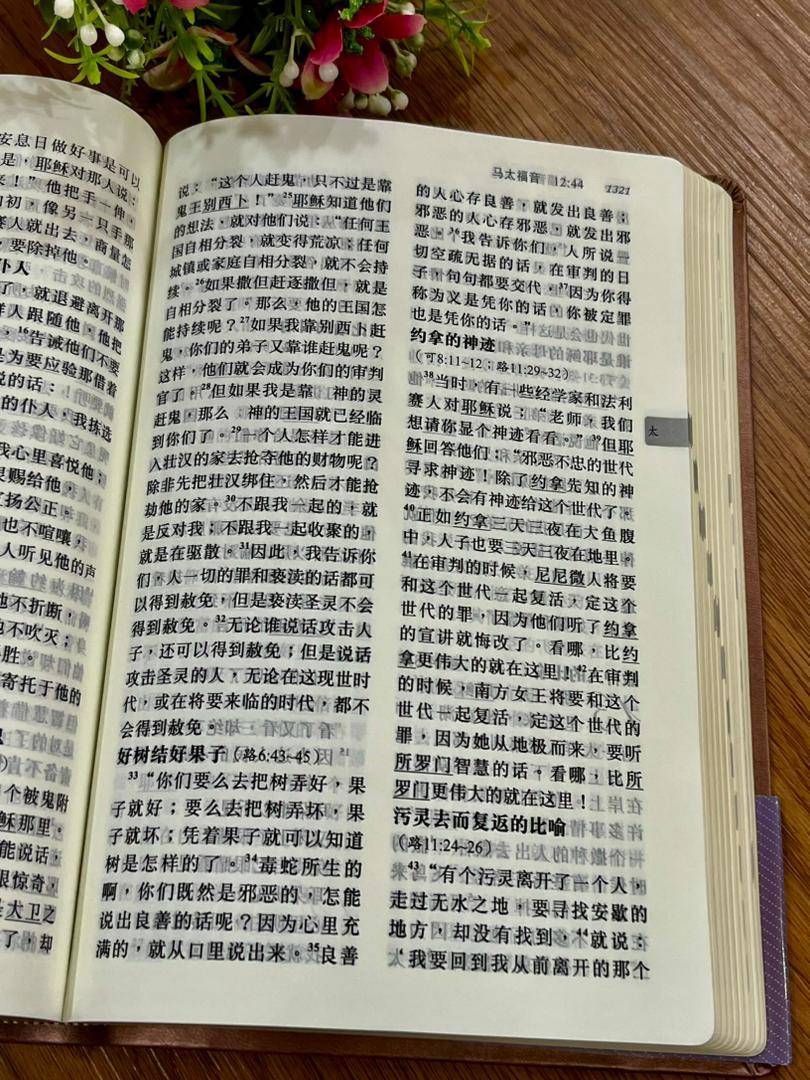 安息日做好事是可以
是，耶稣对那人说：
来！”他把手一伸，
初，像另一只手那
赛人就出去，商量怎
要除掉他。
仆人
了，就退避离开那
样人跟随他，他把
¹⁶告诫他们不要
是为要应验那借着
说的话：
的仆人，我拣选
我心里喜悦他；
灵赐给他，
宣扬公正。
也不喧嚷，
人听见他的声
他不折断，
他不吹灭；
胜。
寄托于他的
个被鬼附
稣那里。
能说话，
很惊奇，
是大卫之
了，却
马太福音 12:44 1321
说：“这个人赶鬼，只不过是靠
鬼王别西卜！”²⁵耶稣知道他们
的想法，就对他们说：“任何王
国自相分裂，就变得荒凉；任何
城镇或家庭自相分裂，就不会持
续。²⁶如果撒但赶逐撒但，就是
自相分裂了。那么，他的王国怎
能持续呢？²⁷如果我靠别西卜赶
鬼，你们的弟子又靠谁赶鬼呢？
这样，他们就会成为你们的审判
官了。²⁸但如果我是靠 神的灵
赶鬼，那么 神的王国就已经临
到你们了。²⁹一个人怎样才能进
入壮汉的家去抢夺他的财物呢？
除非先把壮汉绑住，然后才能抢
劫他的家。³⁰不跟我一起的，就
是反对我；不跟我一起收聚的，
就是在驱散。³¹因此，我告诉你
们，人一切的罪和亵渎的话都可
以得到赦免，但是亵渎圣灵不会
得到赦免。³²无论谁说话攻击人
子，还可以得到赦免；但是说话
攻击圣灵的人，无论在这现世时
代，或在将要来临的时代，都不
会得到赦免。
好树结好果子（路6:43~45）
³³“你们要么去把树弄好，果
子就好；要么去把树弄坏，果
子就坏；凭着果子就可以知道
树是怎样的了。³⁴毒蛇所生的
啊，你们既然是邪恶的，怎能
说出良善的话呢？因为心里充
满的，就从口里说出来。³⁵良善
的人心存良善，就发出良善；
邪恶的人心存邪恶，就发出邪
恶。³⁶我告诉你们，人所说一
切空疏无据的话，在审判的日
子，句句都要交代，³⁷因为你得
称为义是凭你的话，你被定罪
也是凭你的话。”
约拿的神迹
（可8:11~12；路11:29~32）
³⁸当时，有一些经学家和法利
赛人对耶稣说：“老师，我们
想请你显个神迹看看。”³⁹但耶
稣回答他们：“邪恶不忠的世代
寻求神迹！除了约拿先知的神
迹，不会有神迹给这个世代了。
⁴⁰正如约拿三天三夜在大鱼腹
中，人子也要三天三夜在地里。
⁴¹在审判的时候，尼尼微人将要
和这个世代一起复活，定这个
世代的罪，因为他们听了约拿
的宣讲就悔改了。看哪，比约
拿更伟大的就在这里！⁴²在审判
的时候，南方女王将要和这个
世代一起复活，定这个世代的
罪，因为她从地极而来，要听
所罗门智慧的话。看哪，比所
罗门更伟大的就在这里！
污灵去而复返的比喻
（路11:24~26）
⁴³“有个污灵离开了一个人，
走过无水之地，要寻找安歇的
地方，却没有找到，⁴⁴就说：
‘我要回到我从前离开的那个
太